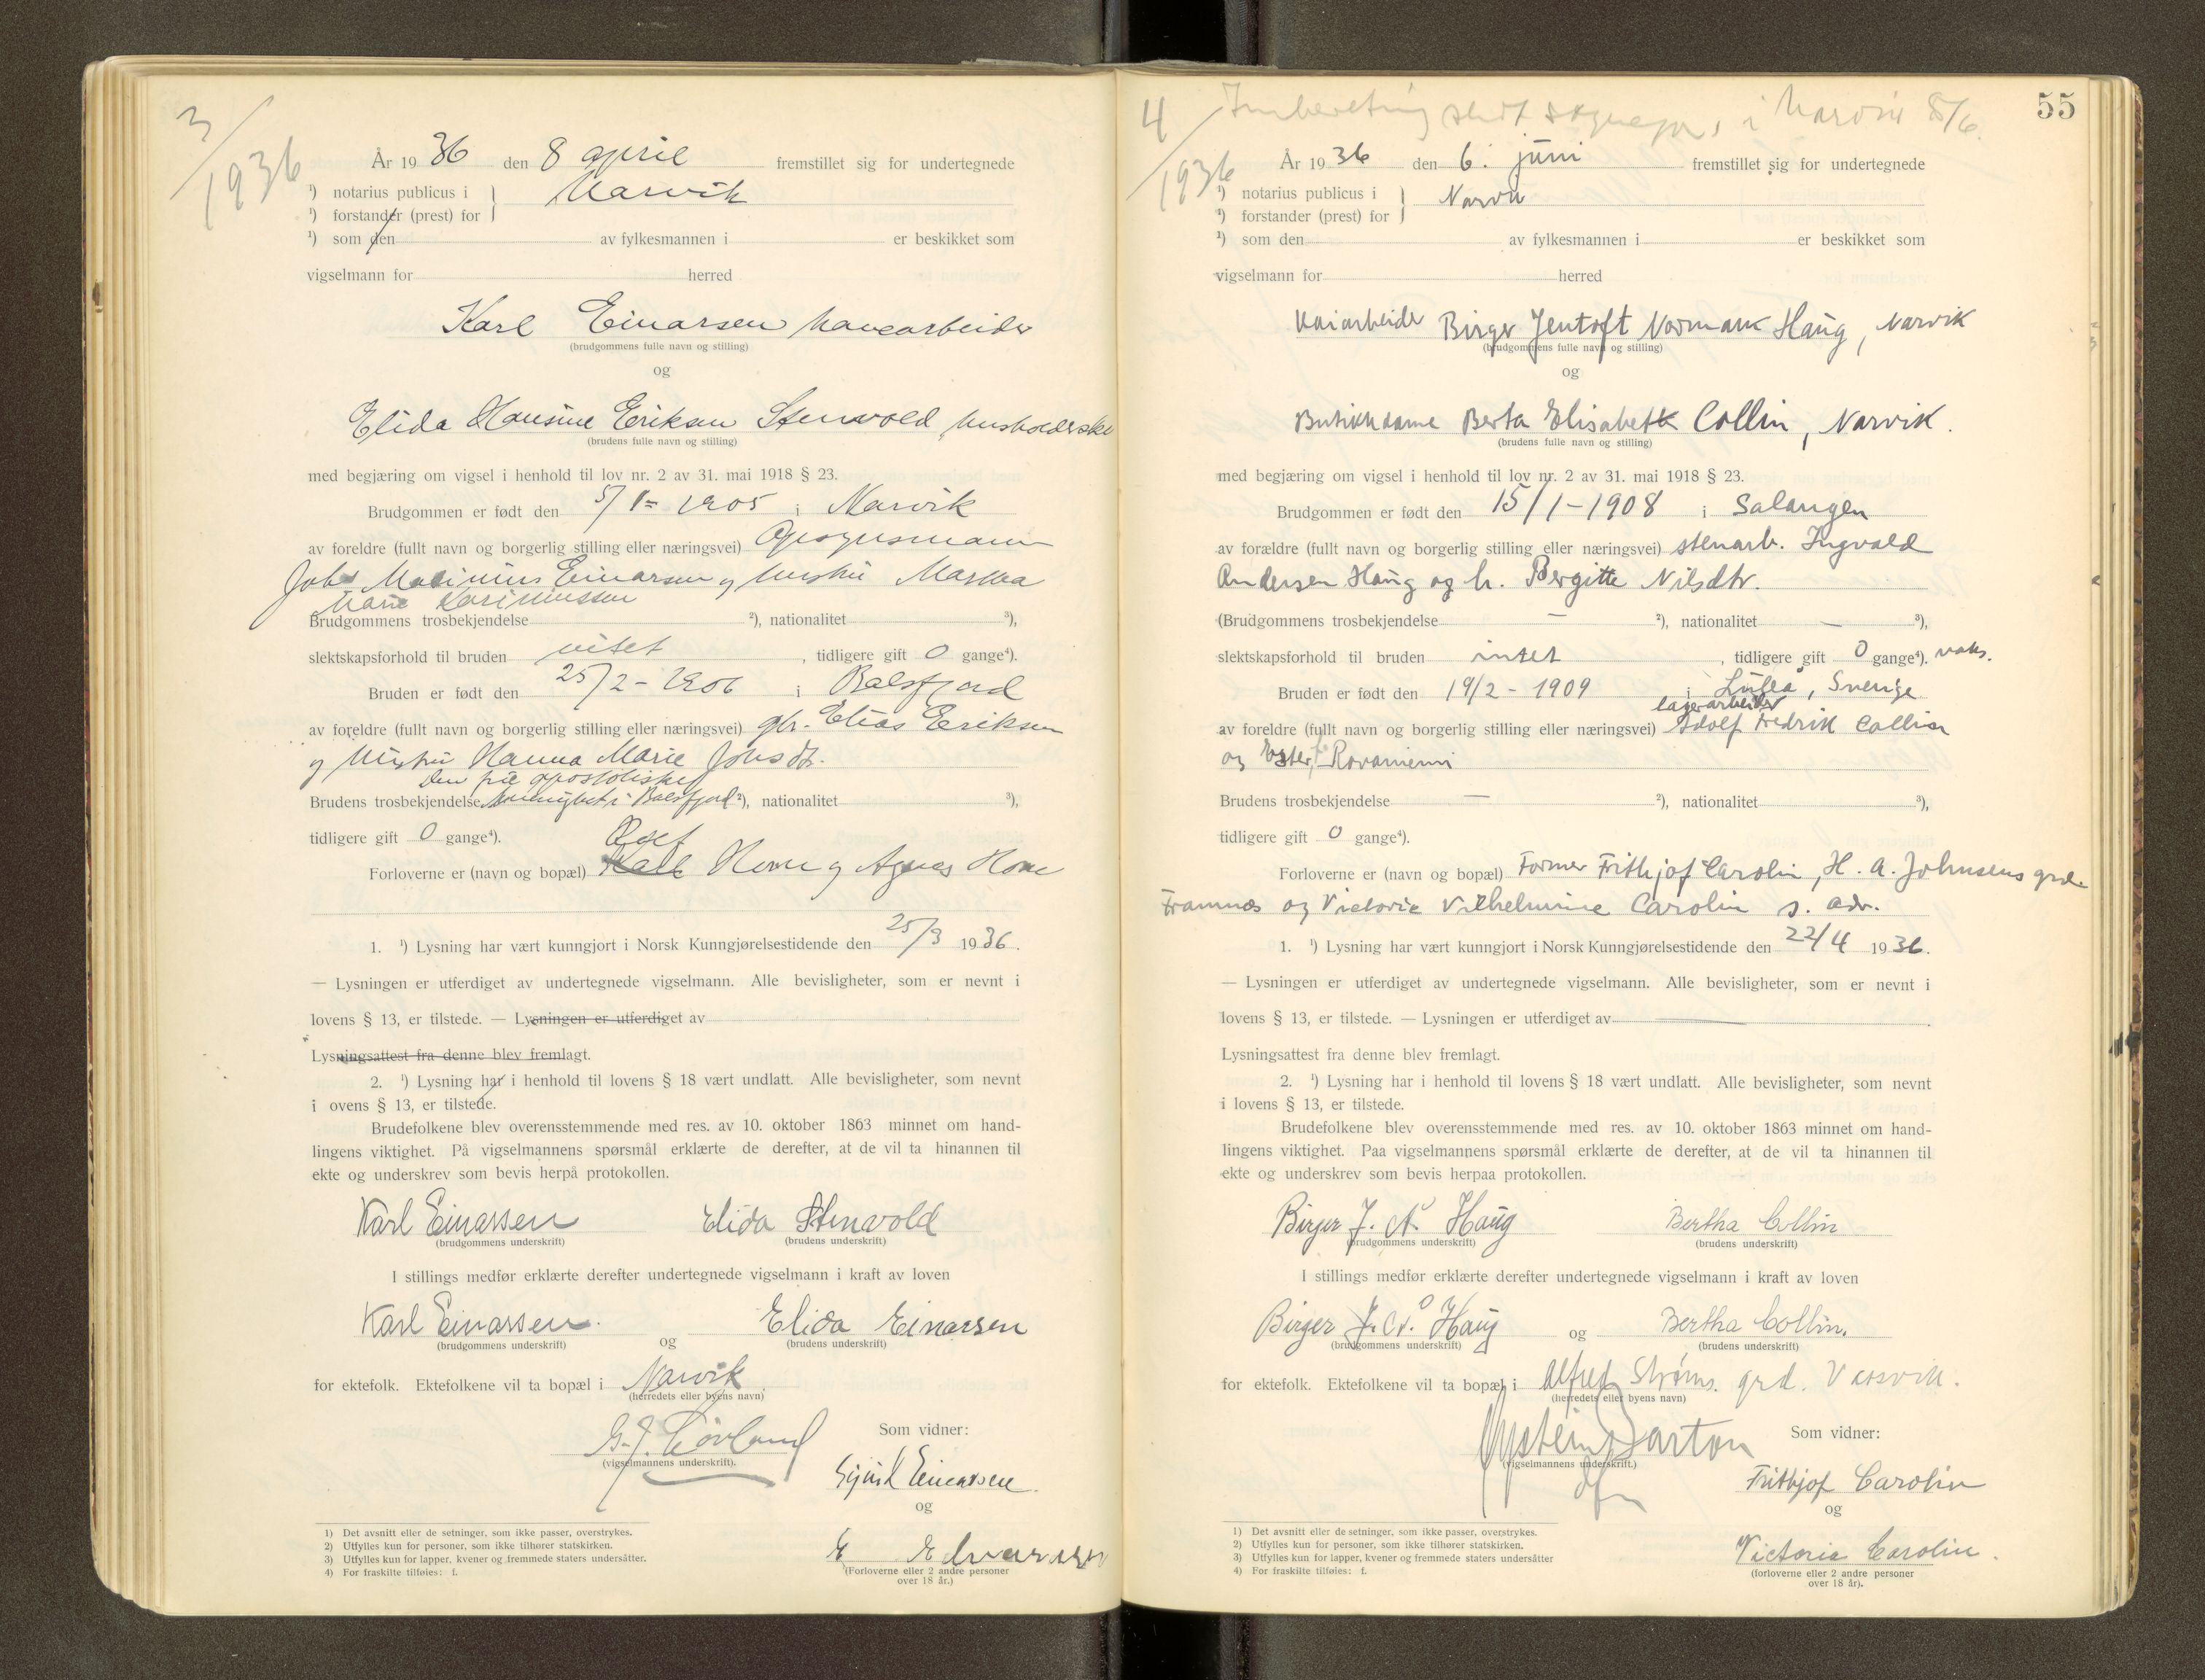 3/1936
År 1936 den 8 april fremstillet sig for undertegnede
¹) notarius publicus i } Narvik
¹) forstander (prest) for
¹) som den av fylkesmannen i er beskikket som
vigselmann for herred
Karl Einarsen havnearbeider
(brudgommens fulle navn og stilling)
og
Elida Hansine Eriksen Stenvold, husholderske
(brudens fulle navn og stilling)
med begjæring om vigsel i henhold til lov nr. 2 av 31. mai 1918 § 23.
Brudgommen er født den 5/1- 1905 i Narvik
av foreldre (fullt navn og borgerlig stilling eller næringsvei) Opsynsmann
Johs Einarsen og hustru Martha
Marie
Brudgommens trosbekjendelse ²), nationalitet ³),
slektskapsforhold til bruden intet, tidligere gift 0 gange⁴).
Bruden er født den 25/2 - 1906 i Balsfjord
av foreldre (fullt navn og borgerlig stilling eller næringsvei) gbr. Elias Eriksen
og hustru Hanna Marie Johsdtr.
den frie apostoliske
Brudens trosbekjendelse menighet i Balsfjord ²), nationalitet ³),
tidligere gift 0 gange⁴).
Forloverne er (navn og bopæl) og Agnes
1. ¹) Lysning har vært kunngjort i Norsk Kunngjørelsestidende den 25/3 1936.
— Lysningen er utferdiget av undertegnede vigselmann. Alle bevisligheter, som er nevnt i
lovens § 13, er tilstede. — Lysningen er utferdiget av
Lysningsattest fra denne blev fremlagt.
2. ¹) Lysning har i henhold til lovens § 18 vært undlatt. Alle bevisligheter, som nevnt
i ovens § 13, er tilstede.
Brudefolkene blev overensstemmende med res. av 10. oktober 1863 minnet om hand-
lingens viktighet. På vigselmannens spørsmål erklærte de derefter, at de vil ta hinannen til
ekte og underskrev som bevis herpå protokollen.
Karl Einarsen Elida Stenvold
(brudgommens underskrift) (brudens underskrift)
I stillings medfør erklærte derefter undertegnede vigselmann i kraft av loven
Karl Einarsen. og Elida Einarsen
(brudgommens underskrift) (brudens underskrift)
for ektefolk. Ektefolkene vil ta bopæl i Narvik
(herredets eller byens navn)
G. J. Løvland
(vigselmannens underskrift).
Som vidner:
Einarsen.
og
E
(Forloverne eller 2 andre personer
over 18 år.)
1) Det avsnitt eller de setninger, som ikke passer, overstrykes.
2) Utfylles kun for personer, som ikke tilhører statskirken.
3) Utfylles kun for lapper, kvener og fremmede staters undersåtter.
4) For fraskilte tilføies: f.
55
4/1936
Innberetning sendt sogneprs i Narvik 8/6.
År 1936 den 6. juni fremstillet sig for undertegnede
¹) notarius publicus i } Narvik
¹) forstander (prest) for
¹) som den av fylkesmannen i er beskikket som
vigselmann for herred
Kaiarbeider Birger Jentoft Normann Haug, Narvik
(brudgommens fulle navn og stilling)
og
Butikkdame Berta Elisabeth Collin, Narvik.
(brudens fulle navn og stilling)
med begjæring om vigsel i henhold til lov nr. 2 av 31. mai 1918 § 23.
Brudgommen er født den 15/1-1908 i Salangen
av forældre (fullt navn og borgerlig stilling eller næringsvei) stenarb. Ingvald
Andersen Haug og h. Bergitte Nilsdtr.
(Brudgommens trosbekjendelse — ²), nationalitet — ³),
slektskapsforhold til bruden intet, tidligere gift 0 gange⁴). vaks.
Bruden er født den 19/2 - 1909 i Luleå, Sverige
lagerarbeider
av foreldre (fullt navn og borgerlig stilling eller næringsvei) Adolf Fredrik Collin
og Ester, f. Rovaniemi
Brudens trosbekjendelse — ²), nationalitet ³),
tidligere gift 0 gange⁴).
Forloverne er (navn og bopæl) Former Frithjof Carolin, H. A. Johnsens grd.
Framnes og Victoria Vilhelmine Carolin s. adr.
1. ¹) Lysning har vært kunngjort i Norsk Kunngjørelsestidende den 22/4 1936.
— Lysningen er utferdiget av undertegnede vigselmann. Alle bevisligheter, som er nevnt i
lovens § 13, er tilstede. — Lysningen er utferdiget av
Lysningsattest fra denne blev fremlagt.
2. ¹) Lysning har i henhold til lovens § 18 vært undlatt. Alle bevisligheter, som nevnt
i lovens § 13, er tilstede.
Brudefolkene blev overensstemmende med res. av 10. oktober 1863 minnet om hand-
lingens viktighet. Paa vigselmannens spørsmål erklærte de derefter, at de vil ta hinannen til
ekte og underskrev som bevis herpaa protokollen.
Birger J. N. Haug Bertha Collin
(brudgommens underskrift) (brudens underskrift)
I stillings medfør erklærte derefter undertegnede vigselmann i kraft av loven
Birger J. N. Haug og Bertha Collin.
(brudgommens underskrift) (brudens underskrift)
for ektefolk. Ektefolkene vil ta bopæl i Alfred Strøms. grd. Vassvik.
(herredets eller byens navn)
Øystein Barton
(vigselmannens underskrift.)
Som vidner:
Frithjof Carolin
og
Victoria Carolin.
(forloverne eller 2 andre personer
over 18 år).
1) Det avsnitt eller de setninger, som ikke passer, overstrykes.
2) Utfylles kun for personer, som ikke tilhører statskirken.
3) Utfylles kun for lapper, kvener og fremmede staters undersåtter
4) For fraskilte tilføies: f.